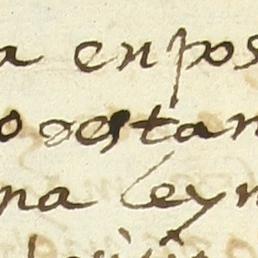 a en pos
o destan
na leyn